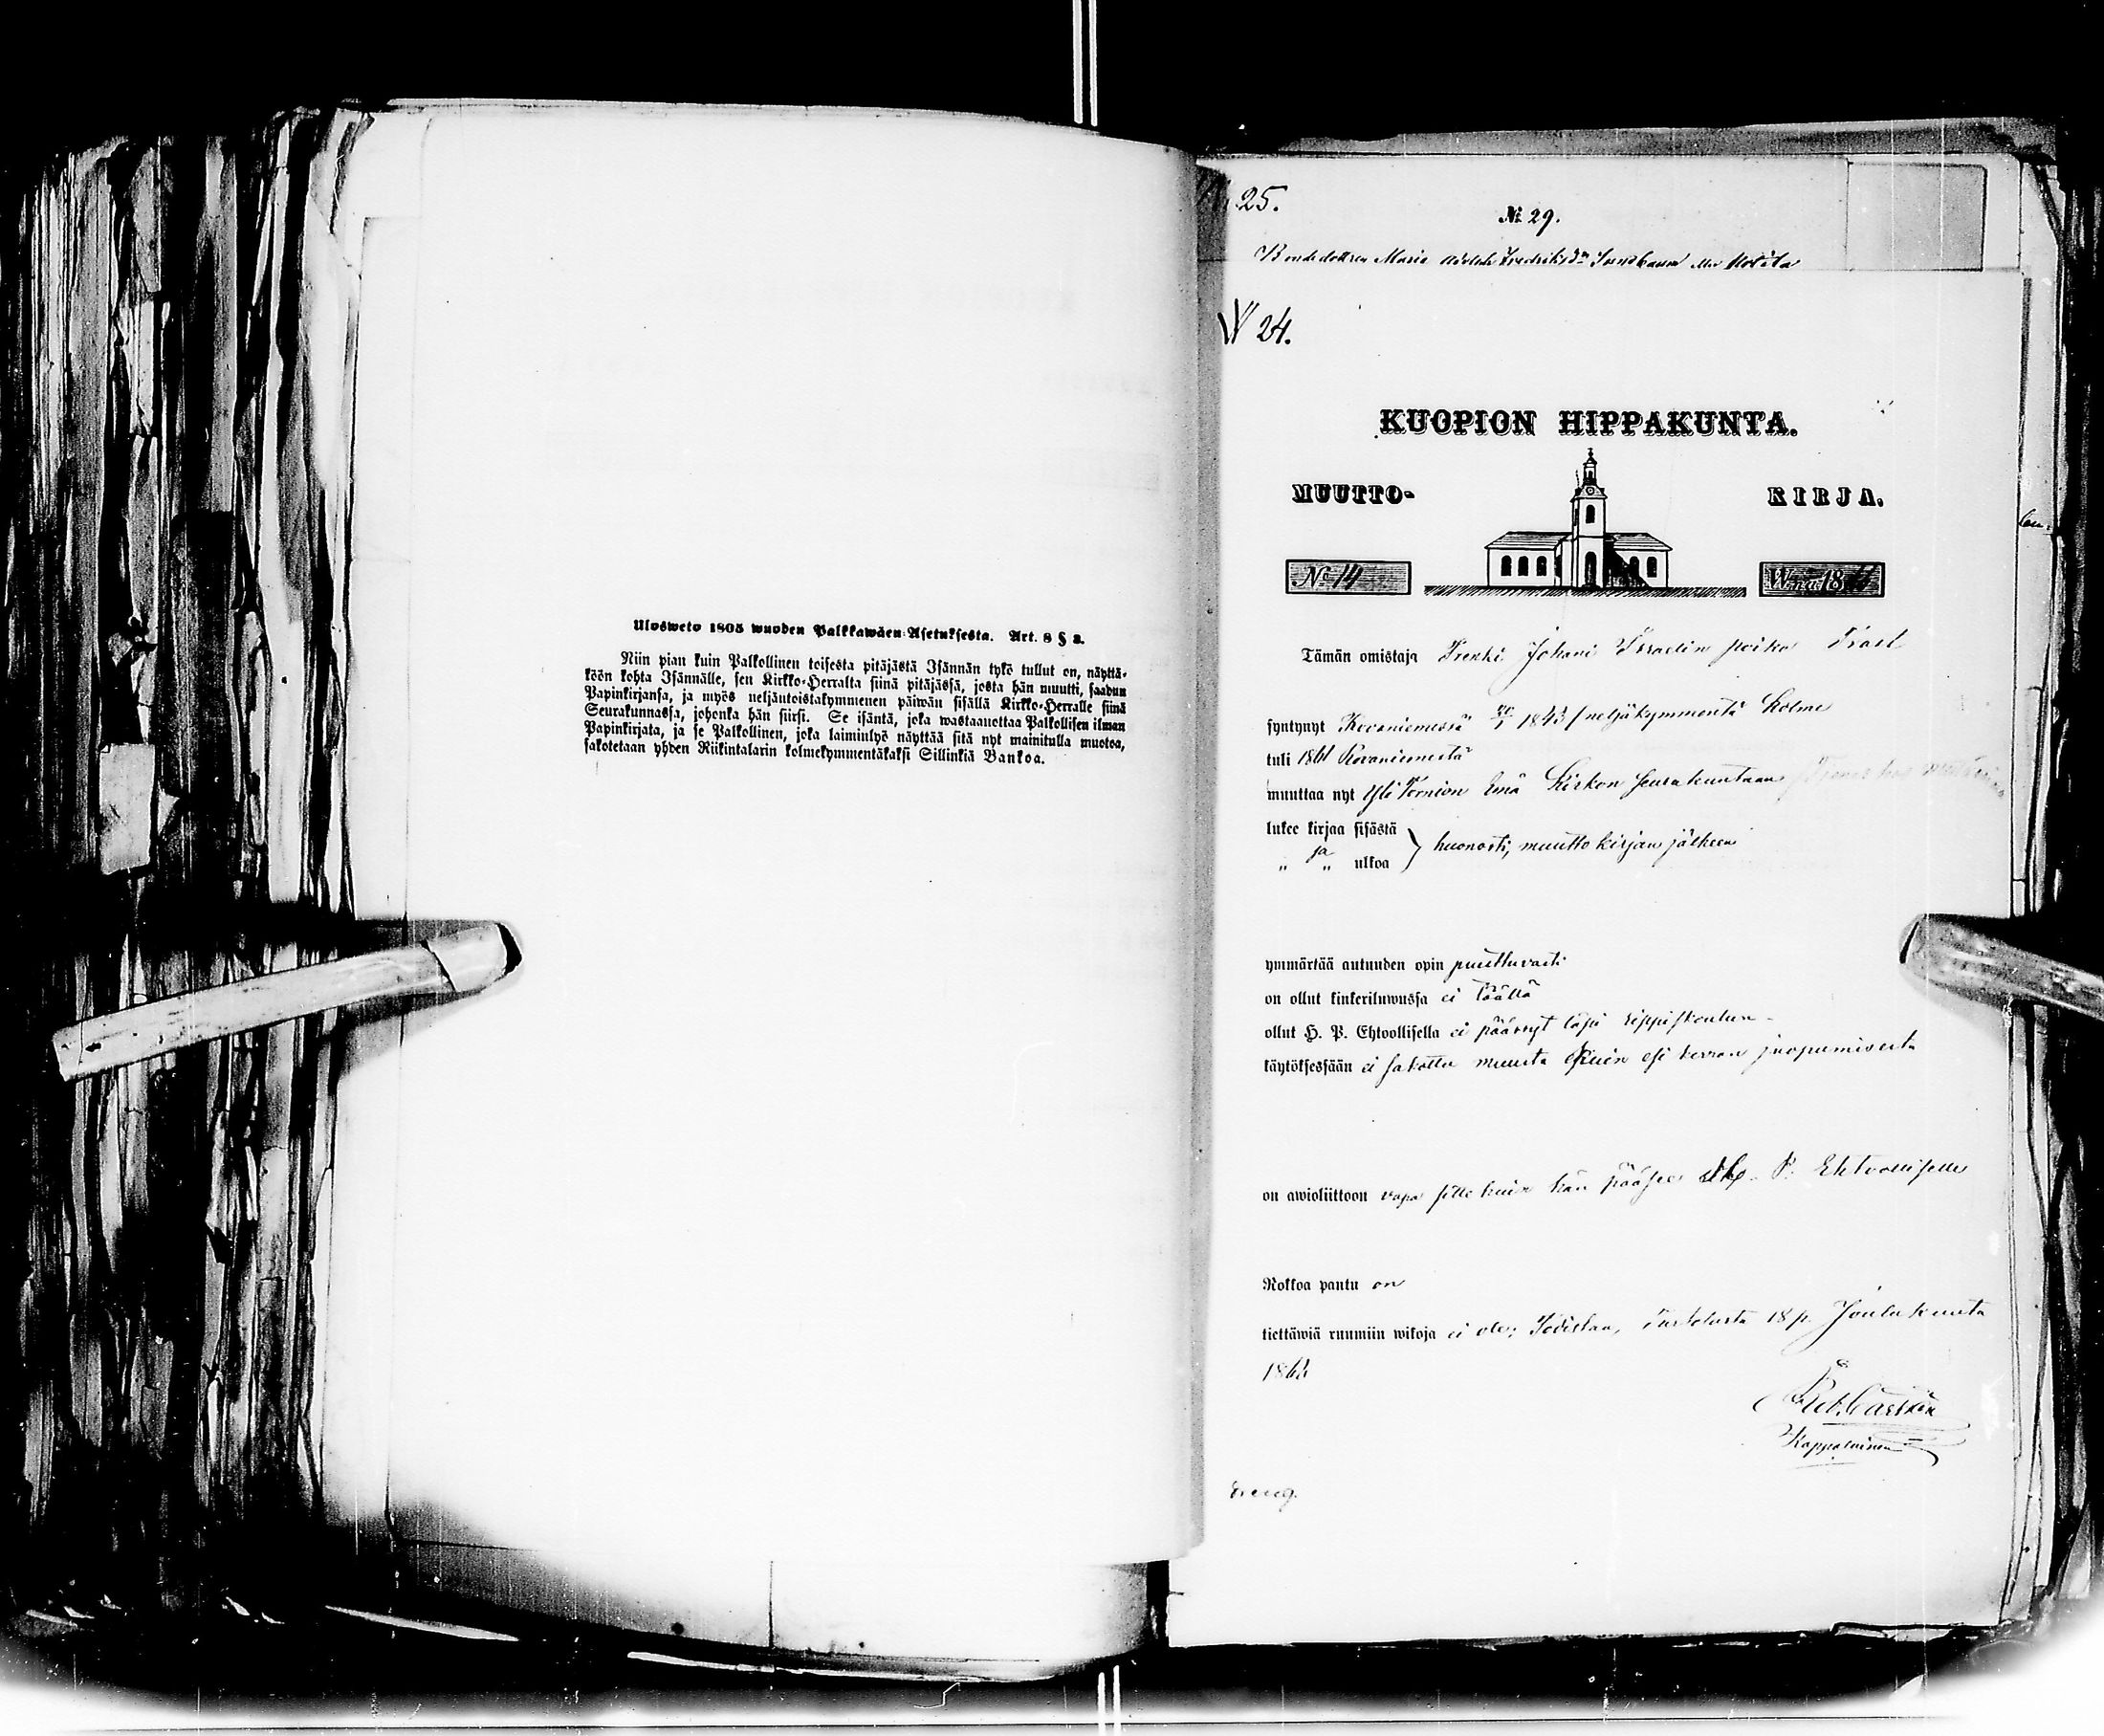 Ulosweto 1805 wuoden Palkkawäen-Asetuksesta. Art. 8 § 2.
Niin pian kuin Palkollinen toisesta pitäjästä Isännän tykö tullut on, näyttä-
köön kohta Isännälle, sen Kirkko-Herralta siinä pitäjässä, josta hän muutti, saadun
Papinkirjansa, ja myös neljäntoistakymmenen päiwän sisällä Kirkko-Herralle siinä
Seurakunnassa, johonka hän siirsi. Se isäntä, joka wastaanottaa Palkollisen ilman
Papinkirjata, ja se Palkollinen, joka laiminlyö näyttää sitä nyt mainitulla muotoa,
sakotetaan yhden Riikintalarin kolmekymmentäkaksi Sillinkiä Bankoa.
25.
№ 29.
Bondedottren Maria Fredriksdr
№ 24.
KUOPION HIPPAKUNTA.
MUUTTO- KIRJA.
No 14 W:na 18
Tämän omistaja Trenki Johani Israelin poika
syntynyt Rovaniemessä 1843 / neljäkymmentä kolme
tuli 1861 Rovaniemestä
muuttaa nyt Yli Tornion Emä Kirkon seurakuntaan
lukee kirjaa sisästä
„ ja „ ulkoa } huonosti, muutto kirjan jälkeen
ymmärtää autuuden opin puuttuvasti
on ollut kinkeriluwussa ei täällä
ollut H. P. Ehtoollisella ei päässyt läpi rippiskoulun
käytöksessään ei sakottu muusta kuin esi kerran juopumisesta
on awioliittoon vapa sitte kuin hän pääsee P. Ehtoolliselle
Rokkoa pantu on
tiettäwiä ruumiin wikoja ei ole; Todistaa, Turtolasta 18 p. Joulukuuta
186
Kappalainen